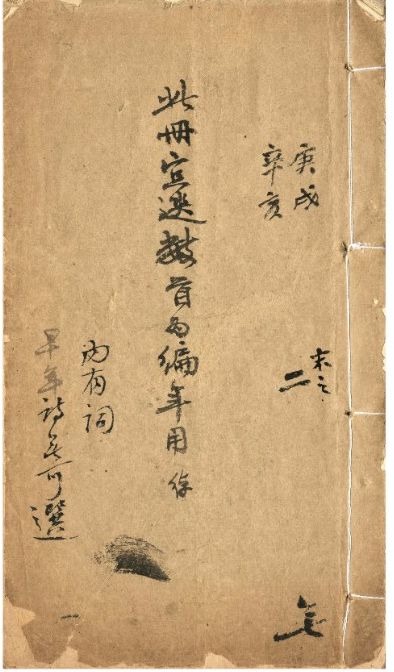 庚戌
辛亥
末之
二
此冊宜選數首為編年用
內有詞
早年詩無可選
一